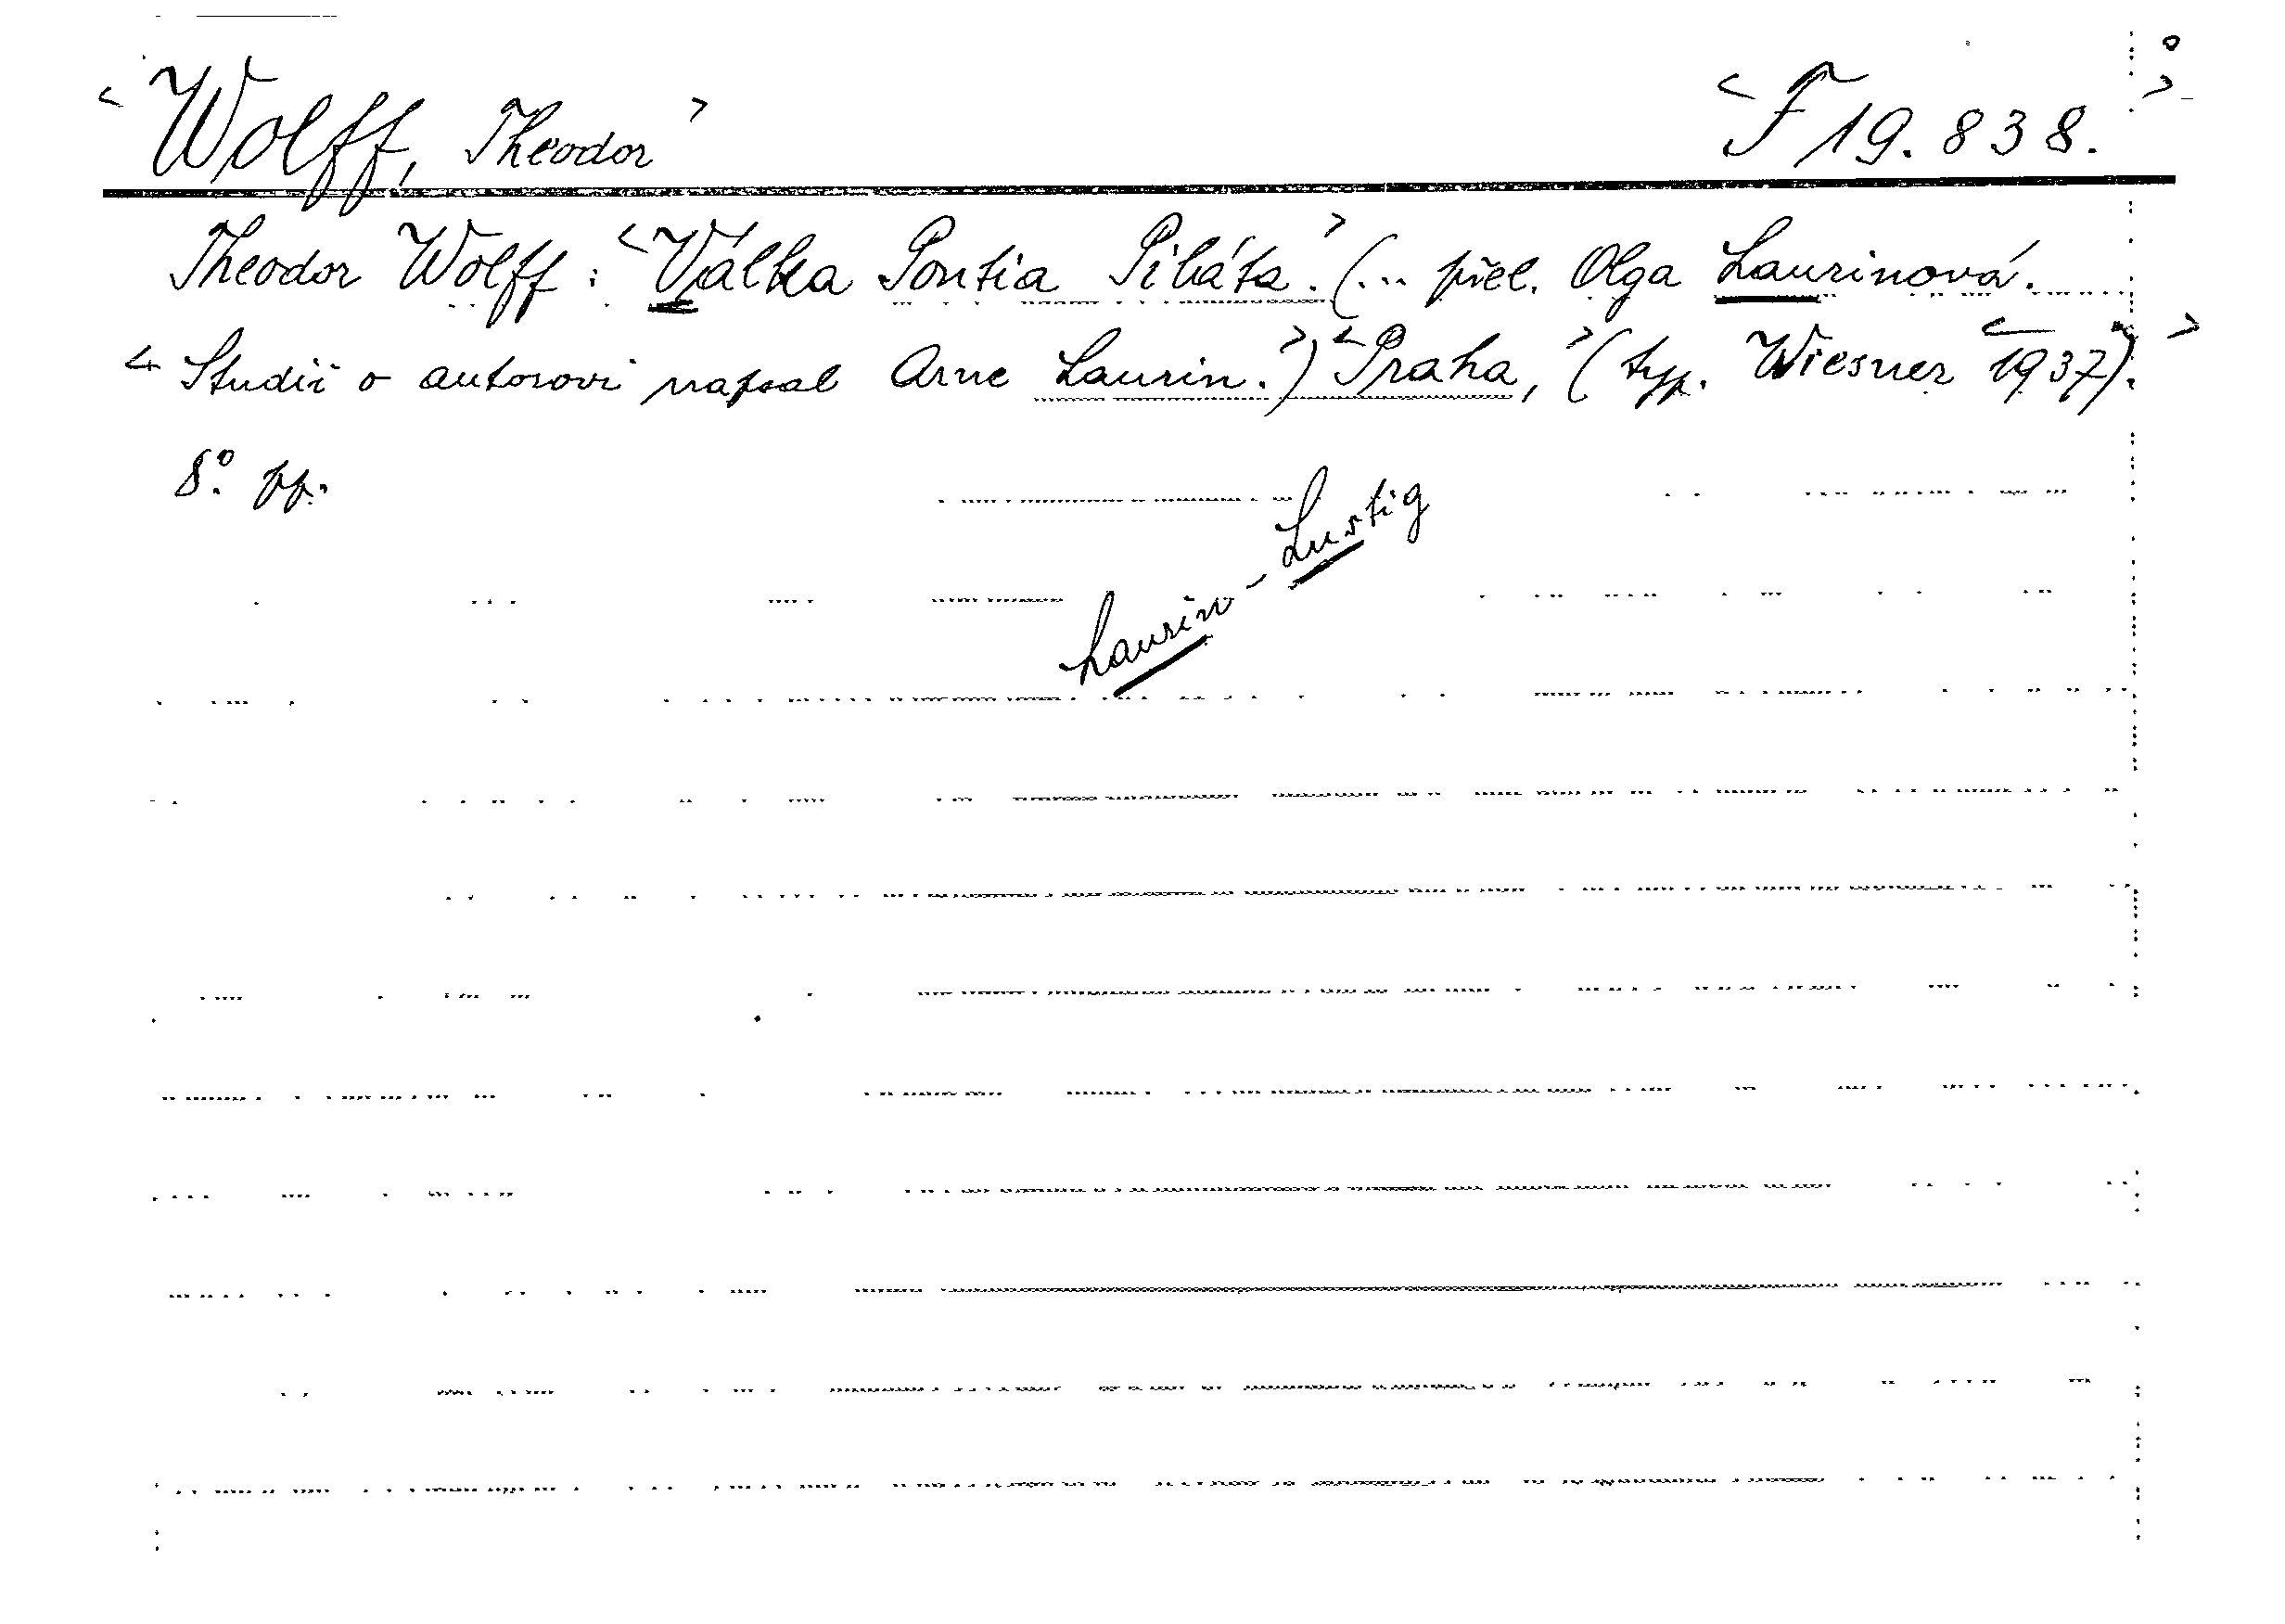 <Wolff, Theodor> <F 19.838.>
Theodor Wolff: <Válka Pontia Piláta.> (... přel. Olga Laurinová.
< Studii o autorovi napsal Arne Laurin.>) <Praha,> (typ. Wiesner <1937).>
8°. pp.
Laurin - Lustig